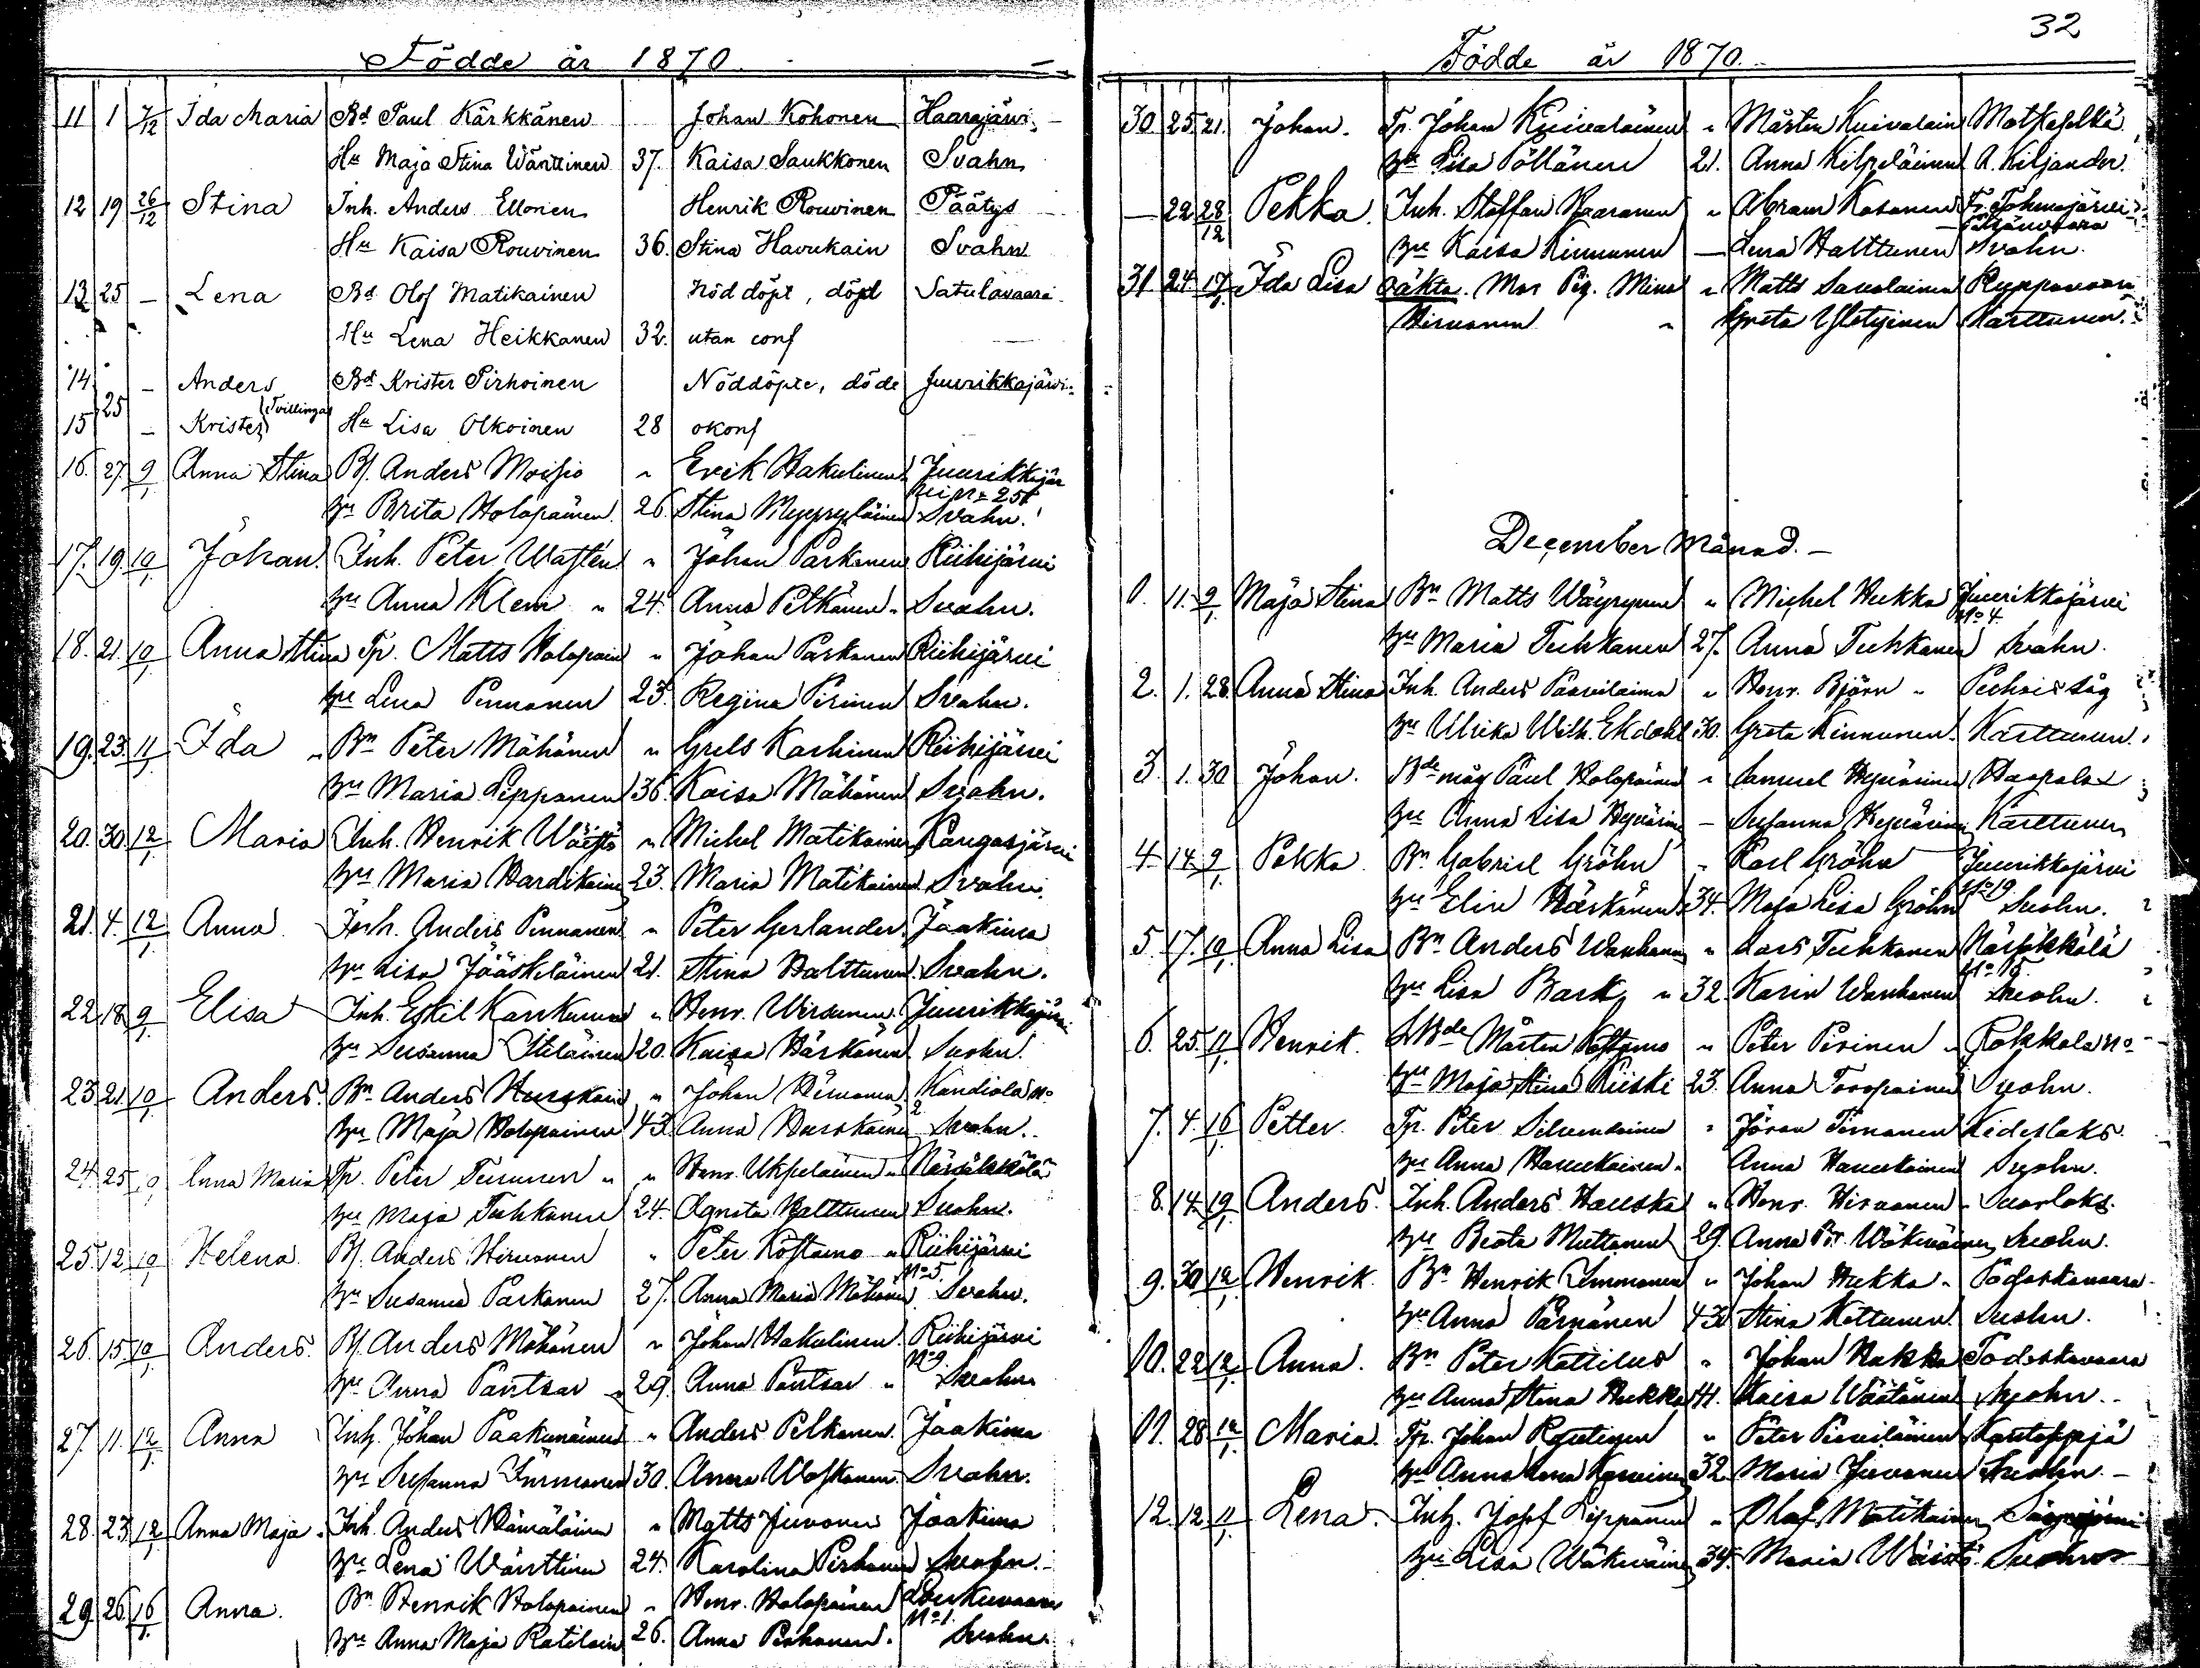 Födde år 1870.
11 1 7/12 Ida Maria Bd Paul Kärkkänen Johan Kohonen Haarajärvi
Hu Maja Stina Wänttinen 37. Kaisa Saukkonen Svahn
12 19 26/12 Stina Inh. Anders Ellonen Henrik Rouvinen Päätys
Hu Kaisa Rouvinen 36. Stina Havukain Svahn
13 25 – Lena Bd Olof Matikainen Nöddöpt, döpt Satulavaara
Hu Lena Heikkanen 32. utan conf
14 – Anders Bd Krister Pirhoinen Nöddöpte, döde Juurikkajärvi
25 Tvillingar
15 – Krister Hu Lisa Olkoinen 28 okonf
16. 27. 9/1 Anna Stina Bf. Anders Moisio " Erik Hakulinen Juurikkajär
vi No 25
hu Brita Holopainen 26. Stina Myyryläinen Svahn.
17. 19. 10/1 Johan. Inh. Peter Waslén " Johan Parkonen Riihijärvi
hu Anna Klem " 24. Anna Pelkonen " Svahn.
18. 21. 10/1 Anna Stina Tp. Matts Holopain " Johan Parkonen Riihijärvi
hu Lena Pennanen 23. Regina Pirinen Svahn.
19. 23. 11/1 Ida " Bn Peter Möhönen " Grels Karhinen Riihijärvi
hu Maria Leppanen 36. Kaisa Möhönen Svahn.
20. 30. 12/1 Maria Inh. Henrik Wäistö " Michel Matikainen Kangasjärvi
hu Maria Hardikain 23. Maria Matikainen Svahn.
21. 4. 12/1 Anna. Inh. Anders Pennanen " Peter Gerlander. Jaakima
hu Lisa Jääskeläinen 21. Stina Halttunen. Svahn.
22. 18. 9/1 Elisa Inh. Eskil Karskunen " Henr. Wirsunen. Juurikkajärvi
hu Susanna Iteläinen 20. Kaisa Härkönen Svahn.
23. 21. 10/1 Anders. Bn Anders Hurskain " Johan Hirvonen Kandiola No
2
hu Maja Holopainen 43. Anna Hurskainen Svahn.
24. 25. 10/1 Anna Maria Tp. Peter Turunen " " Henr. Ukpelainen " Närsäkkälä
hu Maja Tuhkanen 24. Agneta Halttunen Svahn.
25. 12. 10/1 Helena. Bf. Anders Hirvonen " Peter Kostamo " Riihijärvi
No 5.
hu Susanna Parkonen 27. Anna Maria Möhönen Svahn.
26. 15. 10/1 Anders. Bf. Anders Möhönen " Johan Hakulinen. Riihijärvi
No 9.
hu Anna Pantsar " 29. Anna Pantsar " Svahn
27. 11. 12/1 Anna Inh. Johan Paakunainen " Anders Pelkonen. Jaakima
hu Susanna Immonen 30. Anna Waskonen Svahn.
28. 23. 12/1 Anna Maja. Inh. Anders Hämäläinen " Matts Juvonen Jaakima
hu Lena Wänttinen 24. Karolina Pirhonen Svahn.
29. 26. 16/1 Anna. Bn Henrik Holopainen " Henr. Holopainen
No 1.
hu Anna Maja Ratilain 26. Anna Pirhonen. Svahn.
32
Födde år 1870.
30 25 21. Johan. Tp. Johan Kuivalainen " Mårten Kuivalain Matkaselkä
hu Lisa Pöllänen 21. Anna Kilpeläinen A. Kiljander.
– 22 28/12 Pekka. Inh. Staffan Kaaranen " Abram Kosonen Fr. Tohmajärvi
hu Kaisa Kinnunen – Lena Halttunen Svahn.
31. 24 17/1 Ida Lisa Oäkta. Mor Pig. Mina " Matts Savolainen Ryppövaara
Hirvonen " Greta Karttunen.
December Månad.
1. 11. 9/1 Maja Stina Bn Matts Wäyrynen " Michel Hukka Juurikkajärvi
No 4.
hu Maria Tuhkanen 27. Anna Tuhkanen Svahn.
2. 1. 28. Anna Stina Inh. Anders Paavilainen " Henr. Björn " Puhois såg
hu Ulrika Wilh. Ekdahl 30. Greta Kinnunen. Karttunen.
3. 1. 30 Johan. Bde måg Paul Holopainen " Samuel Hyvärinen Haapala
hu Anna Lisa Hyvärinen – Susanna Hyvärinen Karttunen
4. 14 9/1 Pekka Bn Gabriel Gröhn " Karl Gröhn Juurikkajärvi
No 19.
hu Elin Härkönen 34. Maja Lisa Gröhn Svahn.
5. 17. 10/1 Anna Lisa Bn Anders Wanhanen " Lars Tuhkanen Närsäkkälä
hu Lisa Bark " 32. Karin Wanhanen Svahn.
6. 25. 11/1 Henrik. Mårten Kostamo " Peter Pirinen " Rokkala No
hu Maja Stina Kiiski 23. Anna Toropainen Svahn.
7. 4. 16 Petter. Tp. Peter " Jöran Timonen Kideslaks.
hu Anna Havukainen. Anna Havukainen Svahn.
8. 14. 19/1 Anders. Inh. Anders Hauska " Henr. Hirvonen " Suorlaks.
hu Beata Muttonen 29. Anna Br. Wäkeväinen Svahn.
9. 30 12/1 Henrik. Bn Henrik Immonen " Johan Hukka " Podoskavaara
hu Anna Pärnänen 43 Stina Kottunen. Svahn.
10. 22 12/1 Anna. Bn Peter Kattilus " Johan Hukka Podoskavaara
hu Anna Stina Hukka 41. Kaisa Väätänen Svahn.
11. 28 12/1 Maria. Tp. Johan " Peter Paavilainen
hu Anna Lena 32. Maria Juvonen Svahn. –
12. 12. 11/1 Lena. Inh. Josef Leppanen " Olof Matikainen
hu Lisa Wäkeväinen 34. Maria Wäistö Svahn